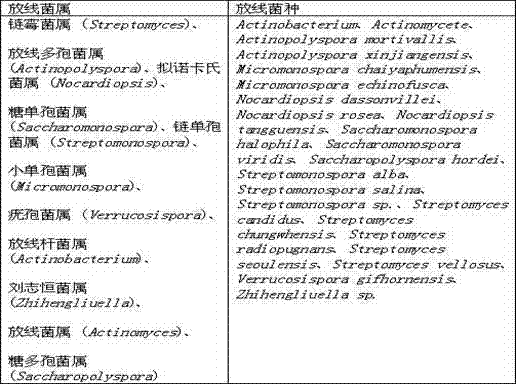 放线菌属
放线菌种
链霉菌属 (Streptomyces)、
放线多孢菌属
(Actinopolyspora)、拟诺卡氏
菌属 (Nocardiopsis)、
糖单孢菌属
(Saccharomonospora)、链单孢
菌属 (Streptomonospora)、
小单孢菌属
(Micromonospora)、
疣孢菌属 (Verrucosispora)、
放线杆菌属
(Actinobacterium)、
刘志恒菌属
(Zhihengliuella)、
放线菌属 (Actinomyces)、
糖多孢菌属
(Saccharopolyspora)
Actinobacterium、Actinomycete、
Actinopolyspora mortivallis、
Actinopolyspora xinjiangensis、
Micromonospora chaiyaphumensis、
Micromonospora echinofusca、
Nocardiopsis dassonvillei、
Nocardiopsis rosea、Nocardiopsis
tangguensis、Saccharomonospora
halophila、Saccharomonospora
viridis、Saccharopolyspora hordei、
Streptomonospora alba、
Streptomonospora salina、
Streptomonospora sp.、Streptomyces
candidus、Streptomyces
chungwhensis、Streptomyces
radiopugnans、Streptomyces
seoulensis、Streptomyces vellosus、
Verrucosispora gifhornensis、
Zhihengliuella sp.